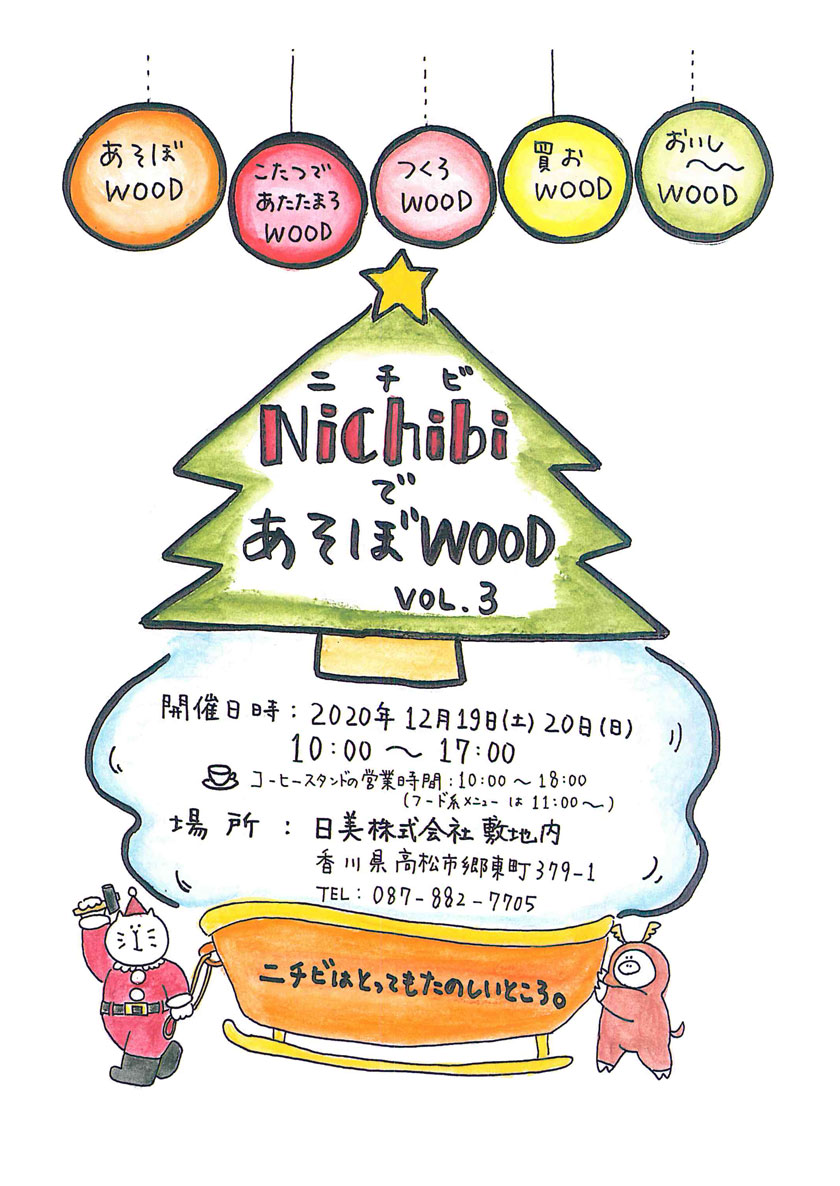 あそぼ
WOOD
こたつで
あたたまろ
WOOD
つくろ
WOOD
買お
WOOD
おいし
〜〜
WOOD
ニチビ
Nichibi
で
あそぼWOOD
VOL.3
開催日時：2020年12月19日(土)20日(日)
10:00〜17:00
コーヒースタンドの営業時間：10:00〜18:00
(フード系メニューは11:00〜)
場所：日美株式会社敷地内
香川県高松市郷東町379-1
TEL：087-882-7705
ニチビはとってもたのしいところ。